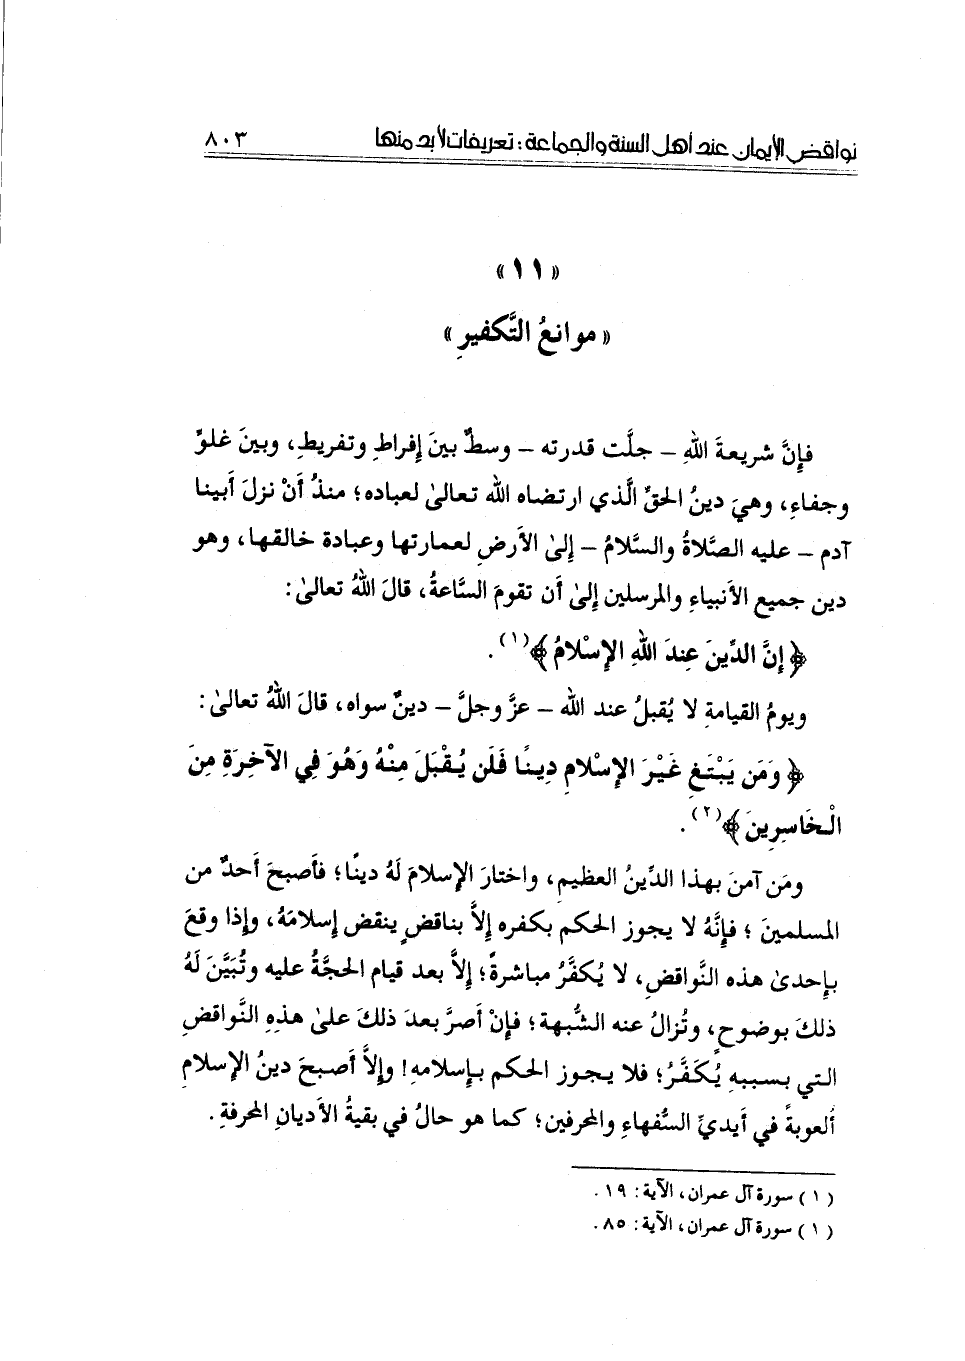 نواقض الإيمان عند أهل السنة والجماعة : تعريفات لابد منها ٨٠٣
«١١»
«موانعُ التَّكفيرِ»
فإنَّ شريعةَ اللهِ – جلَّت قدرته – وسطٌ بينَ إفراطٍ وتفريطٍ، وبينَ غلوٍّ
وجفاءٍ، وهيَ دينُ الحقِّ الَّذي ارتضاه الله تعالىٰ لعباده؛ منذُ أنْ نزلَ أبينا
آدم – عليه الصَّلاةُ والسَّلامُ – إلىٰ الأرضِ لعمارتها وعبادة خالقها، وهو
دين جميع الأنبياءِ والمرسلين إلىٰ أن تقومَ السَّاعةُ، قالَ اللهُ تعالىٰ:
﴿إنَّ الدِّينَ عِندَ اللهِ الإسْلامُ﴾(١).
ويومُ القيامةِ لا يُقبلُ عند الله – عزَّ وجلَّ – دينٌ سواه، قالَ اللهُ تعالىٰ:
﴿وَمَن يَبْتَغِ غَيْرَ الإسْلامِ دِينًا فَلَن يُقْبَلَ مِنْهُ وَهُوَ فِي الآخِرَةِ مِنَ
الْخَاسِرِينَ﴾(٢).
ومَن آمنَ بهذا الدِّينُ العظيمِ، واختارَ الإسلامَ لَهُ دينًا؛ فأصبحَ أحدٌ من
المسلمينَ؛ فإنَّهُ لا يجوز الحكم بكفره إلاَّ بناقضٍ ينقض إسلامَهُ، وإذا وقعَ
بإحدىٰ هذه النَّواقضِ، لا يُكفَّرُ مباشرةً؛ إلاَّ بعد قيام الحجَّةُ عليه وتُبَيَّنَ لَهُ
ذلكَ بوضوحٍ، وتُزالُ عنه الشُّبهة؛ فإنْ أصرَّ بعدَ ذلكَ علىٰ هذهِ النَّواقضِ
التي بسببهِ يُكَفَّرُ؛ فلا يجوز الحكم بإسلامهِ! وإلاَّ أصبحَ دينُ الإسلامِ
ألعوبةً في أيديِّ السُّفهاءِ والمحرفين؛ كما هو حالُ في بقيةُ الأديانِ المحرفةِ.
(١) سورة آل عمران، الآية: ١٩.
(١) سورة آل عمران، الآية: ٨٥.